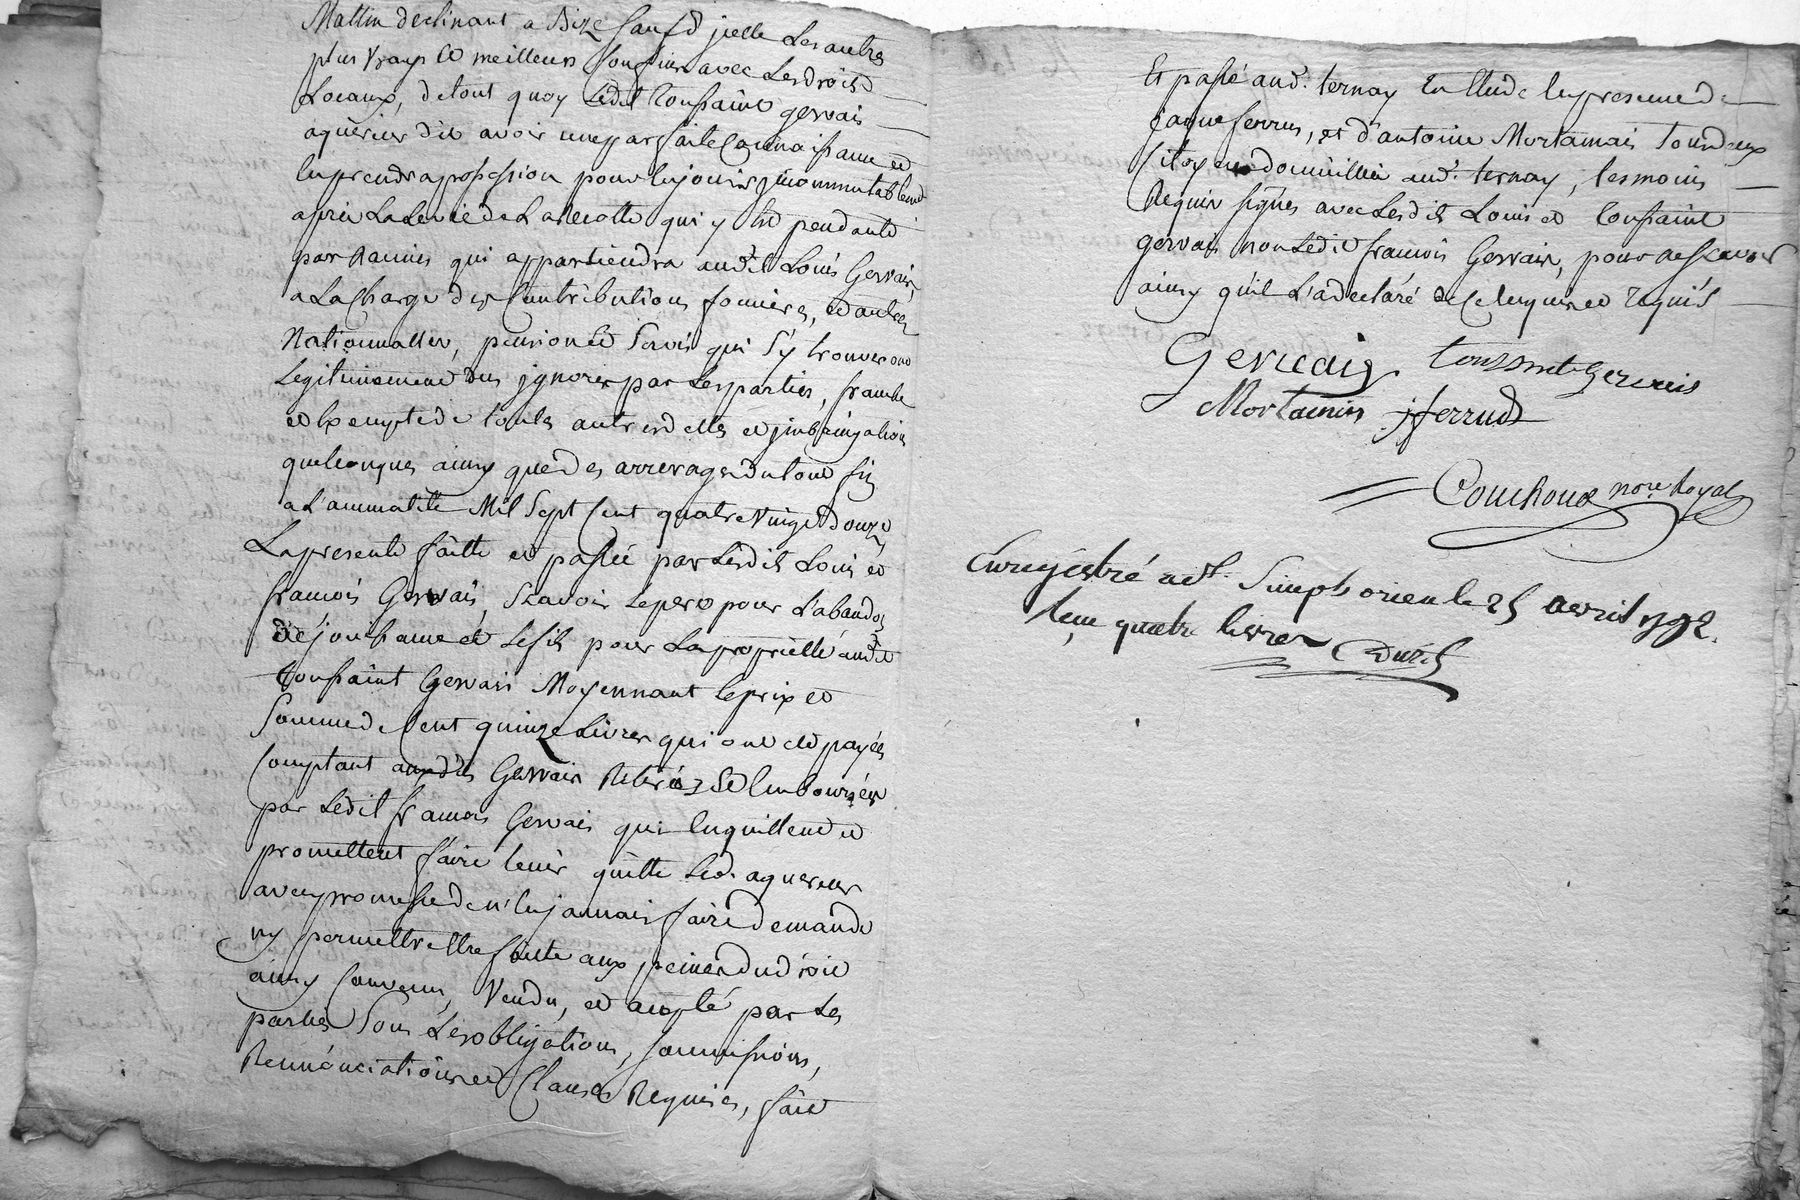 Mattin declinant a Bize sauf d'jcelle Les autres
plus vrays et meilleurs Confins avec Les droits
Locaux, de tout quoy Ledit Toussaint gervais
aquereur dit avoir une parfaite Connoissance et
en prendra possession pour en jouir jncommutablement
apres La Levée de La recolte qui y est pendante
par racines qui appartiendra audit Louis Gervais,
a La Charge des Contributions foncieres, et autres
Nationnalles, pension et Servis qui s'y trouveront
Legitimement dus jgnorés par Les parties, franche
et Exempte de toutes autres dettes et
quelconques ainsy que des arrerages du tout jusques
a L'année Mil Sept Cent quatre Vingt Douze,
La presente faitte et passée par Lesdits Louis et
francois Gervais, Scavoir Le pere pour L'abandon
de jouissance et Le fils pour La proprietté audit
Toussaint Gervais Moyennant Le prix et
Somme de Cent quinze Livres qui ont eté payées
Comptant auxdits Gervais Retirées et Emboursées
par Ledit francois Gervais qui En quittent et
promettent faire tenir quitte Led. aquereur
avec promesse de n'En jamais faire demande
ny permettre Etre faitte aux peines du droit
ainsy Convenu, Vendu, et accepté par Les
parties Sous Les obligations, soumissions,
Rennonciations et Clauses Requises, fait
Et passé aud. ternay En Etude En presence de
jaque ferrus, et d'antoine Mortamais tous deux
Citoyens domicilliés aud. ternay, temoins
Requis signés avec Lesdits Louis et Toussaint
gervais non Ledit francois Gervais, pour ne scavoir
ainsy qu'il L'a declaré de Ce enquis et requis
Gervais toussaint gervais
Mortamais j ferrus
Couchoud nore Royal
Enregistré a St. Simphorien le 25 avril 1792.
recu quatre livres